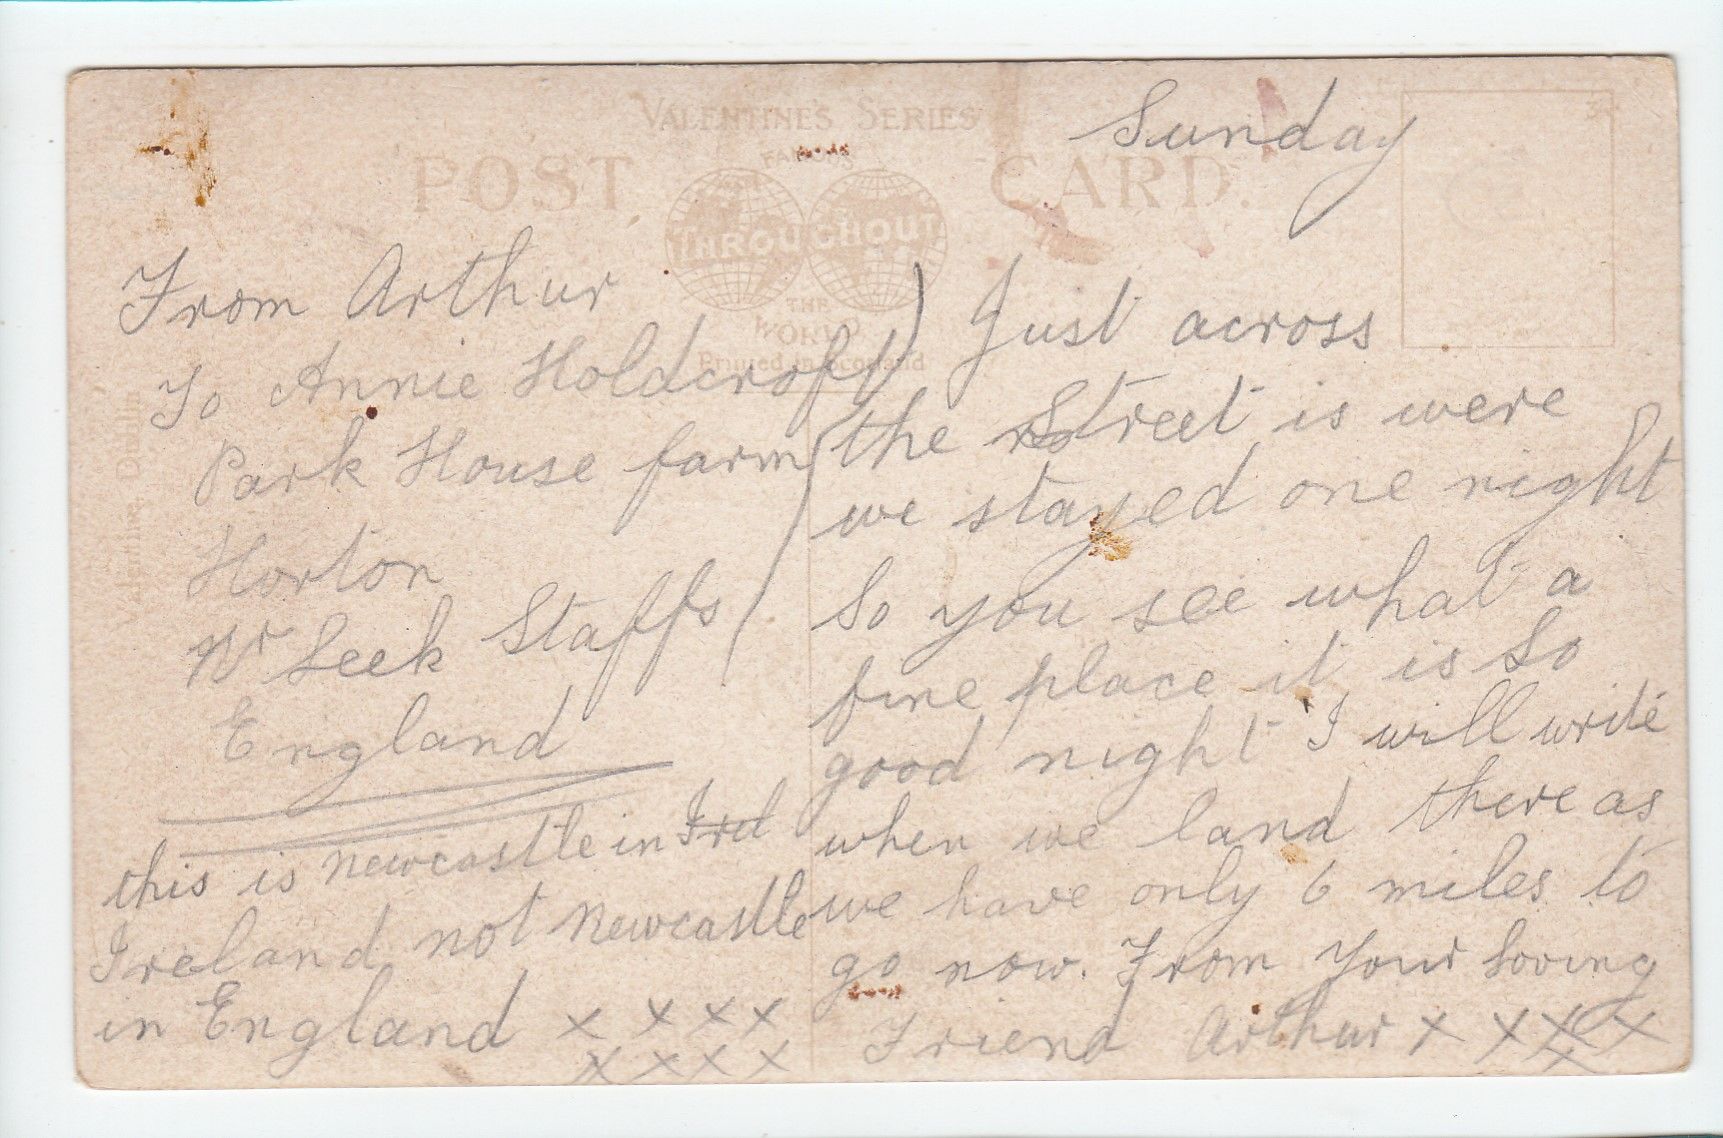 VALENTINE'S SERIES
FAMOUS
POST CARD.
THROUGHOUT
THE
WORLD
Printed in Scotland
Valentine Dublin
From Arthur
To Annie Holdcroft
Park House farm
Horton
Nr Leek Staffs
England
this is newcastle in Irel
Ireland not Newcastle
in England x x x x
x x x x
Sunday
Just across
the Street is were
we stayed one night
So you see what a
fine place it is So
good night I will write
when we land there as
we have only 6 miles to
go now. From Your Loving
Friend Arthur x x x x
x